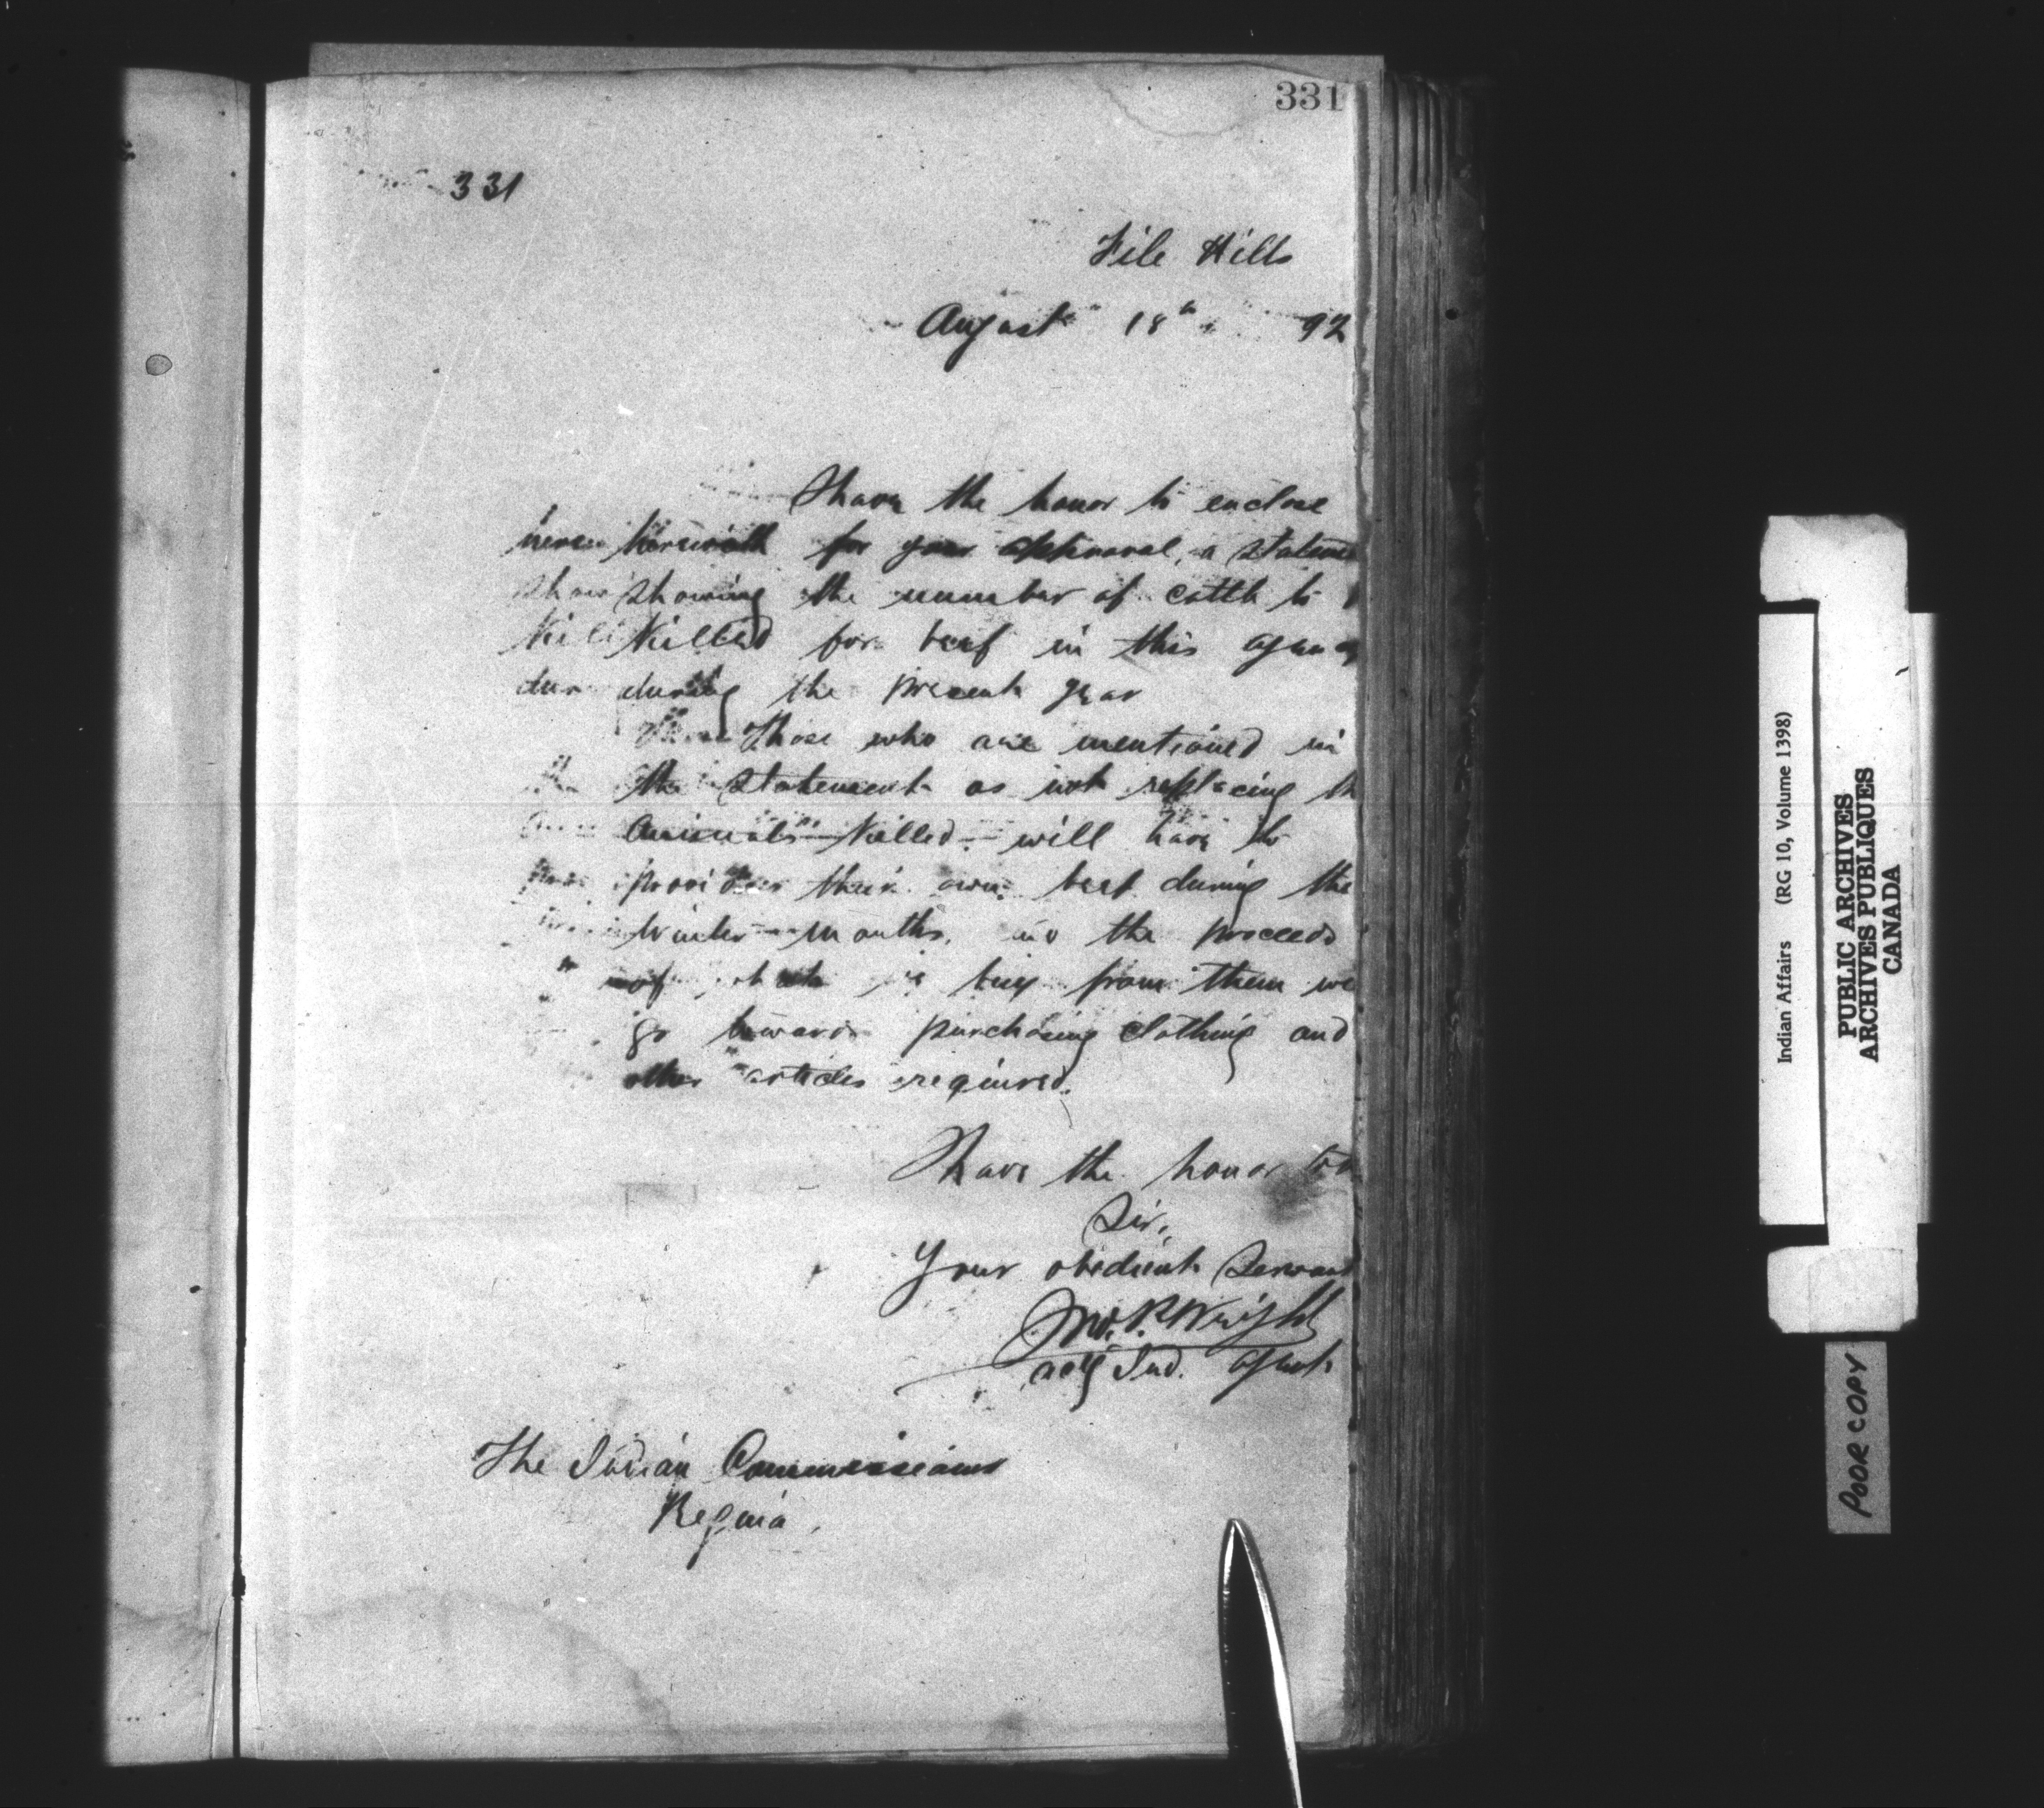 331
331
File Hills
August 18th 92
I have the honor to enclose
herew herewith for your approval, a stateme
show showing the number of cattle to b
kill killed for beef in this agency
dur during the present year
Those who are mentioned in
the the statement as not replacing th
animals killed - will have to
prov provide their own beef during the
winter months, the proceeds
of buy from them we
go towards purchasing clothing and
other articles required.
I have the honor to
Sir,
Your obedient Servant
Jno. P. Wright
actg Ind. agent
The Indian Commissioner
Regina
Indian Affairs (RG 10, Volume 1398)
PUBLIC ARCHIVES
ARCHIVES PUBLIQUES
CANADA
POOR COPY